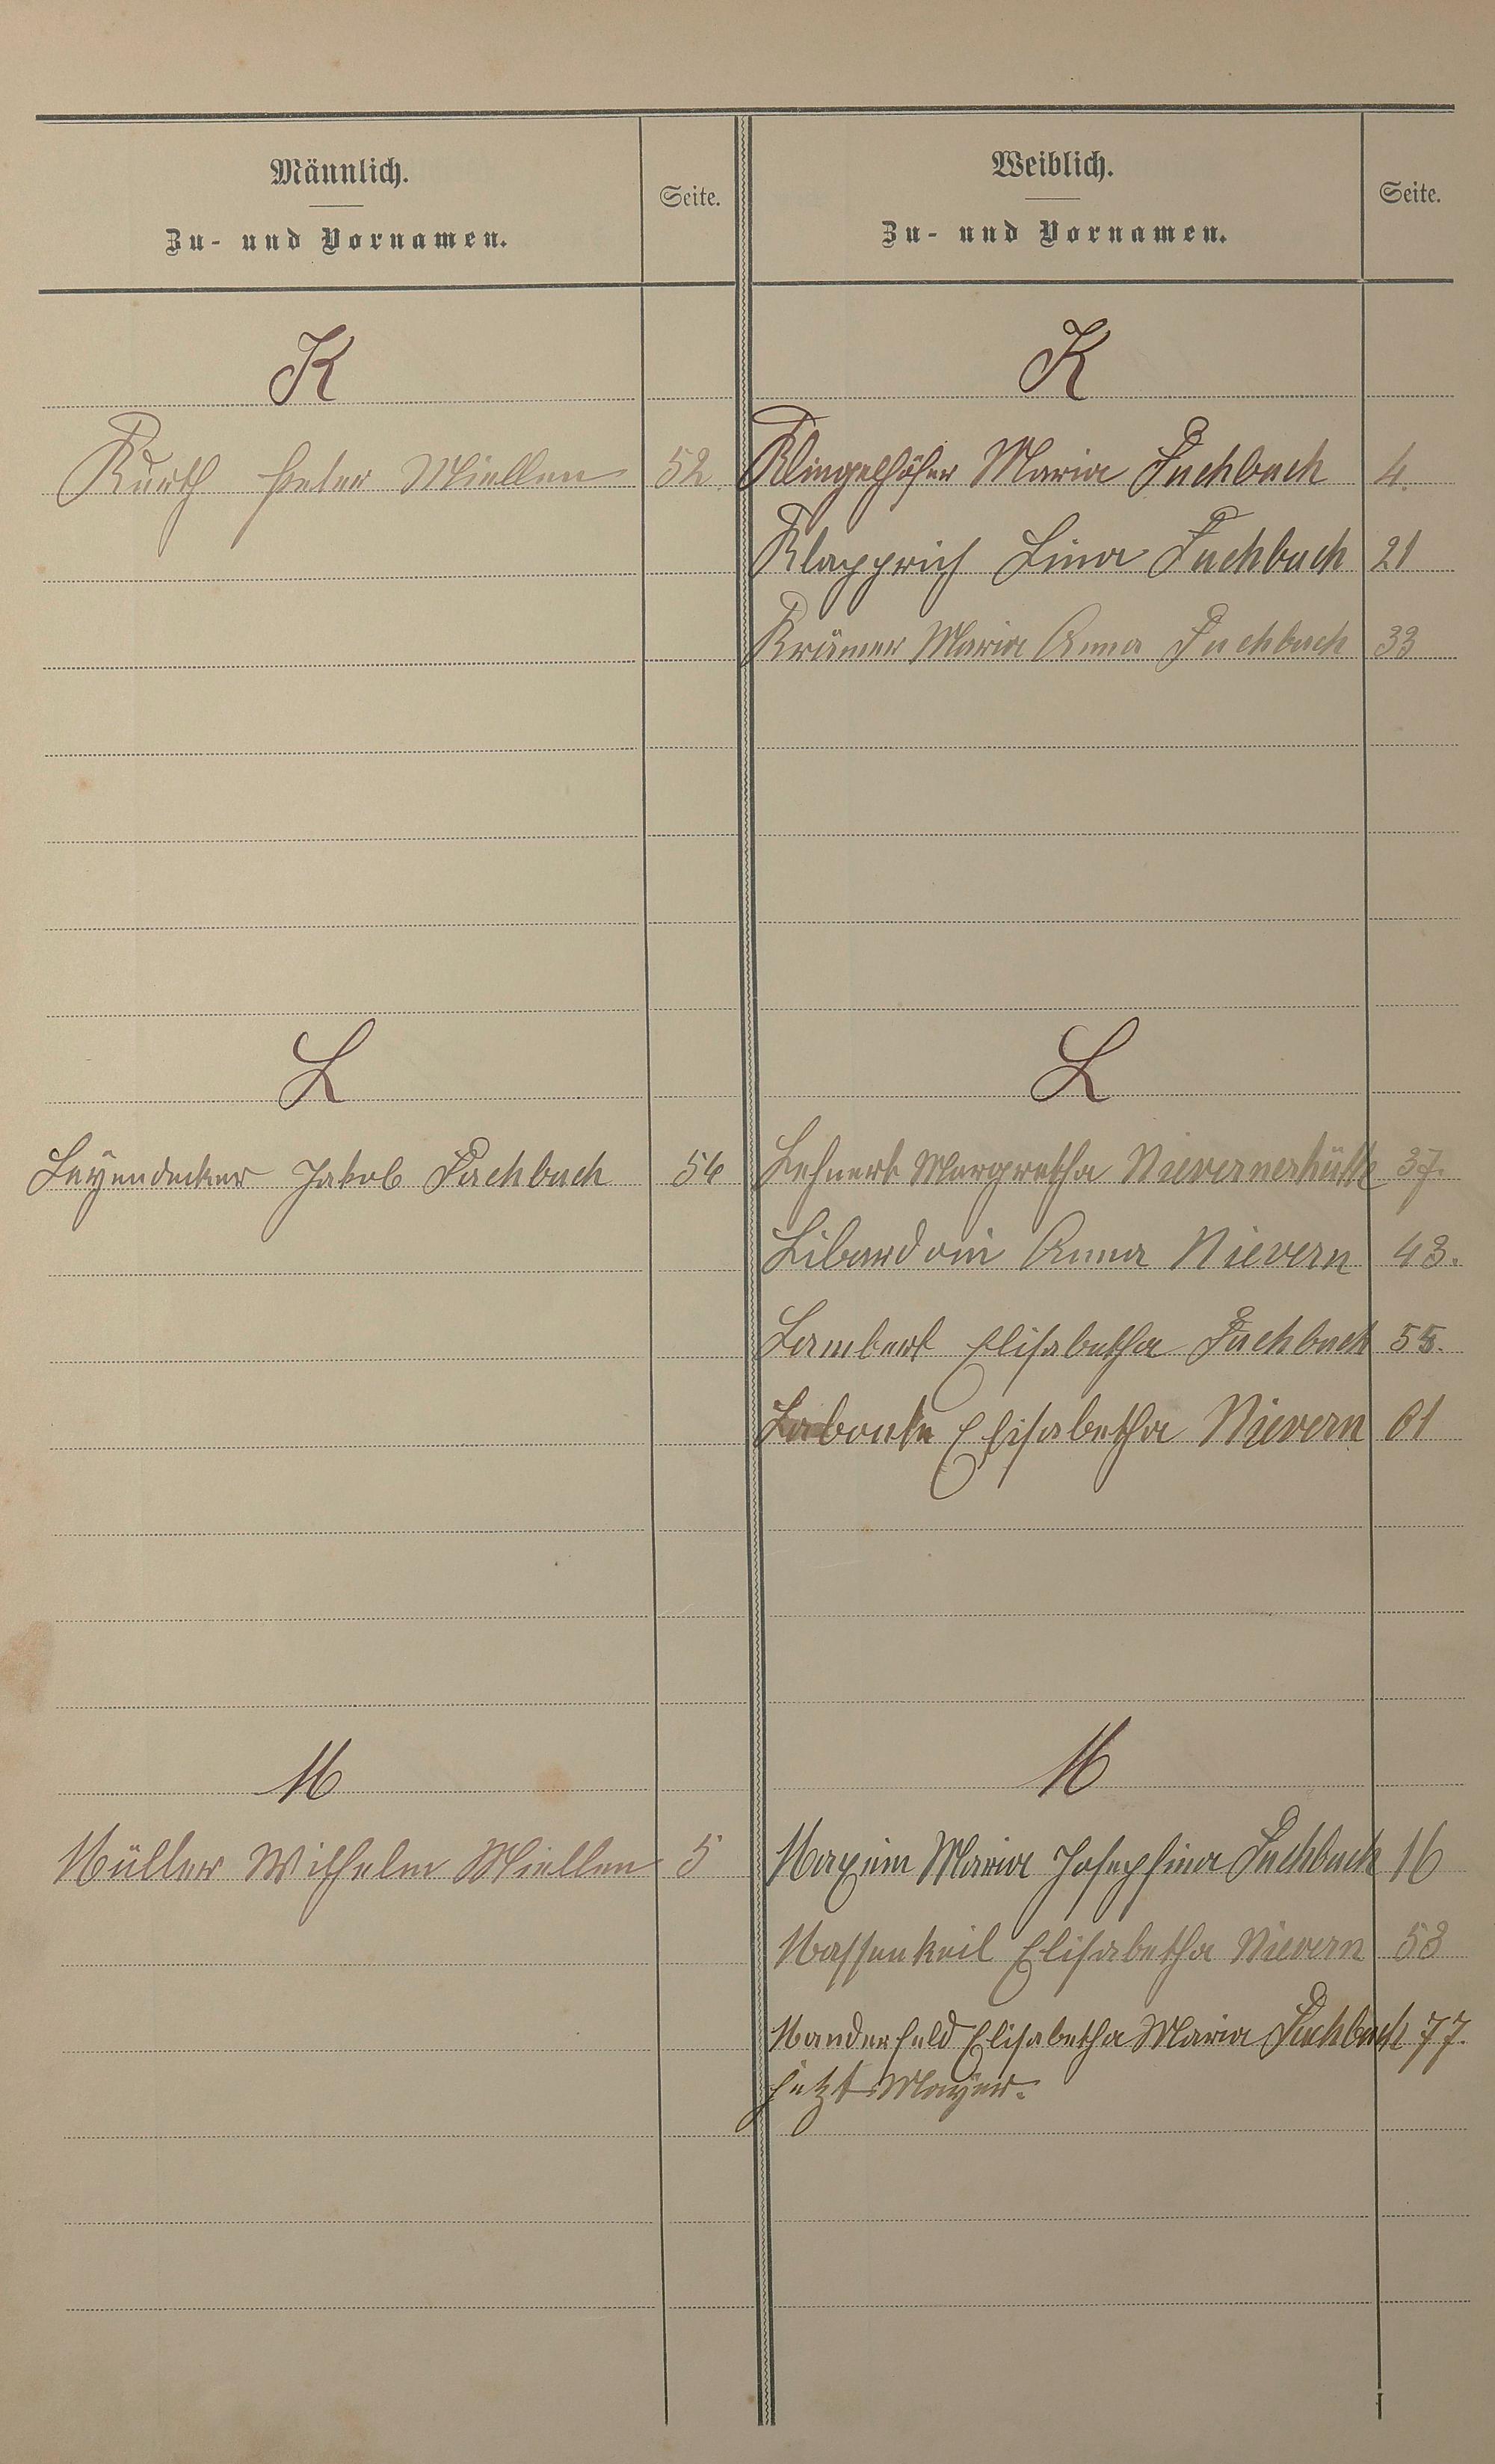 Männlich.
Zu- und Vornamen.
Seite.
Weiblich.
Zu- und Vornamen.
Seite.
K
K
Kurth Peter Miellen 52.
Klingelhöfer Maria Fachbach 4.
Klapprich Lina Fachbach 21
Krämer Maria Anna Fachbach 33
L
L
Leyendecker Jakob Fachbach
Lehnert Margretha Nievernerhütte 37.
Anna Nievern 43.
Lambert Elisabetha Fachbach 55.
Labonte Elisabetha Nievern 61
M
M
Müller Wilhelm Miellen 5
Maxim Maria Josephina Fachbach 16
Massenkeil Elisabetha Nievern 53
Manderfeld Elisabetha Maria Fachbach 77.
jetzt Mayer.